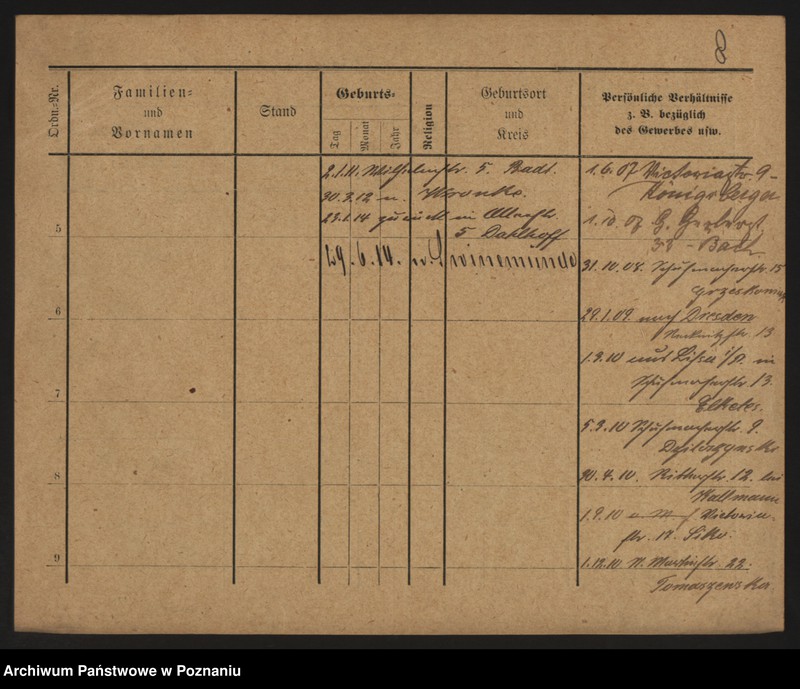 8
Ordn.-Nr.
Familien-
und
Vornamen
Stand
Geburts-
Tag
Monat
Jahr
Religion
Geburtsort
und
Kreis
Persönliche Verhältnisse
z. B. bezüglich
des Gewerbes usw.
2.1.11. Wilhelmstr. 5. Badt.
30.3.12 n. Wronke.
23.1.14 zurück in
5 Dahlhoff
29.6.14. n. Swinemünde
5
6
7
8
9
1.6.07 Victoriastr. 9-
Königsberger
1.10.07 G. Gerberst.
38 - Bach
31.10.08. Schuhmacherstr. 15
29.1.09 nach Dresden
13
1.3.10 aus Lissa i/P. in
Schuhmacherstr. 13.
Elkeles.
5.3.10 Schuhmacherstr. 9.
30.4.10. Ritterstr. 12. bei
Wallmann
1.9.10 Victoria-
str. 12.
1.12.10 St. Martinstr. 22.
Tomaszewska
Archiwum Państwowe w Poznaniu